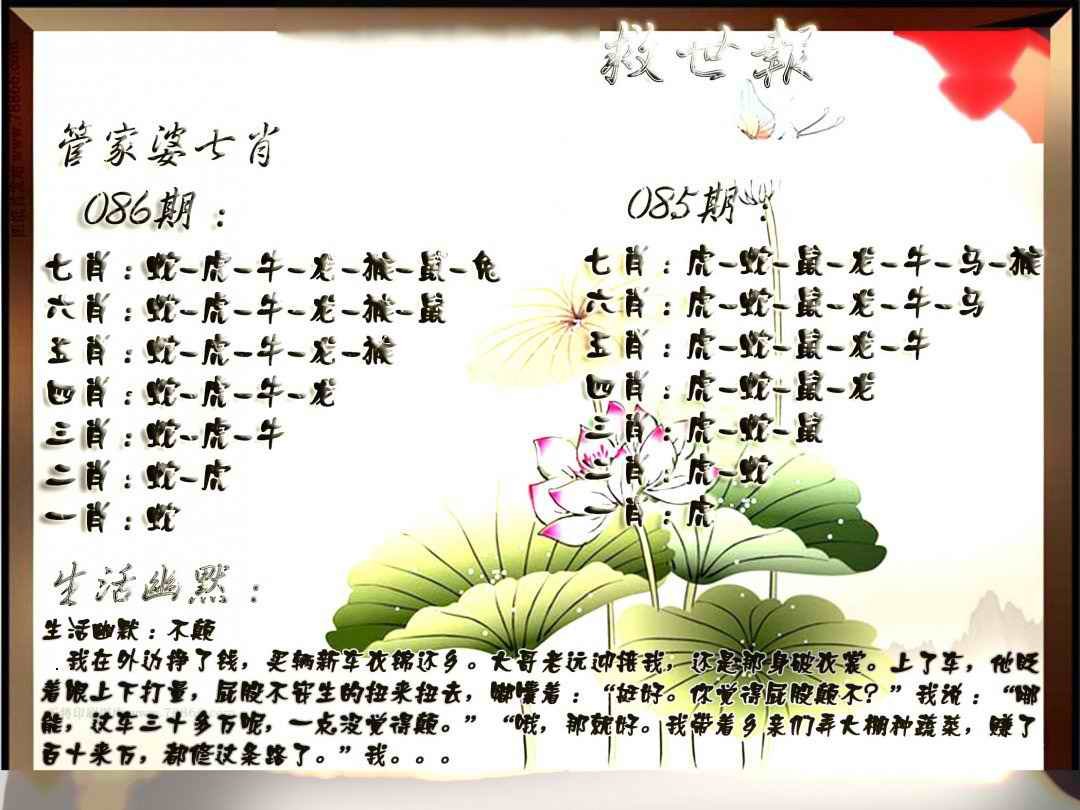 救世報
管家婆七肖
086期：
七肖：蛇-虎-牛-龙-猴-鼠-兔
六肖：蛇-虎-牛-龙-猴-鼠
五肖：蛇-虎-牛-龙-猴
四肖：蛇-虎-牛-龙
三肖：蛇-虎-牛
二肖：蛇-虎
一肖：蛇
085期：
七肖：虎-蛇-鼠-龙-牛-马-猴
六肖：虎-蛇-鼠-龙-牛-马
五肖：虎-蛇-鼠-龙-牛
四肖：虎-蛇-鼠-龙
三肖：虎-蛇-鼠
二肖：虎-蛇
一肖：虎
生活幽默：
生活幽默：不颠
．我在外边挣了钱，买辆新车衣锦还乡。大哥老远迎接我，还是那身破衣裳。上了车，他眨
着眼上下打量，屁股不安生的扭来扭去，嘟囔着：“挺好。你觉得屁股颠不？”我说：“哪
能，这车三十多万呢，一点没觉得颠。”“哦，那就好。我带着乡亲们弄大棚种蔬菜，赚了
百十来万，都修这条路了。”我。。。